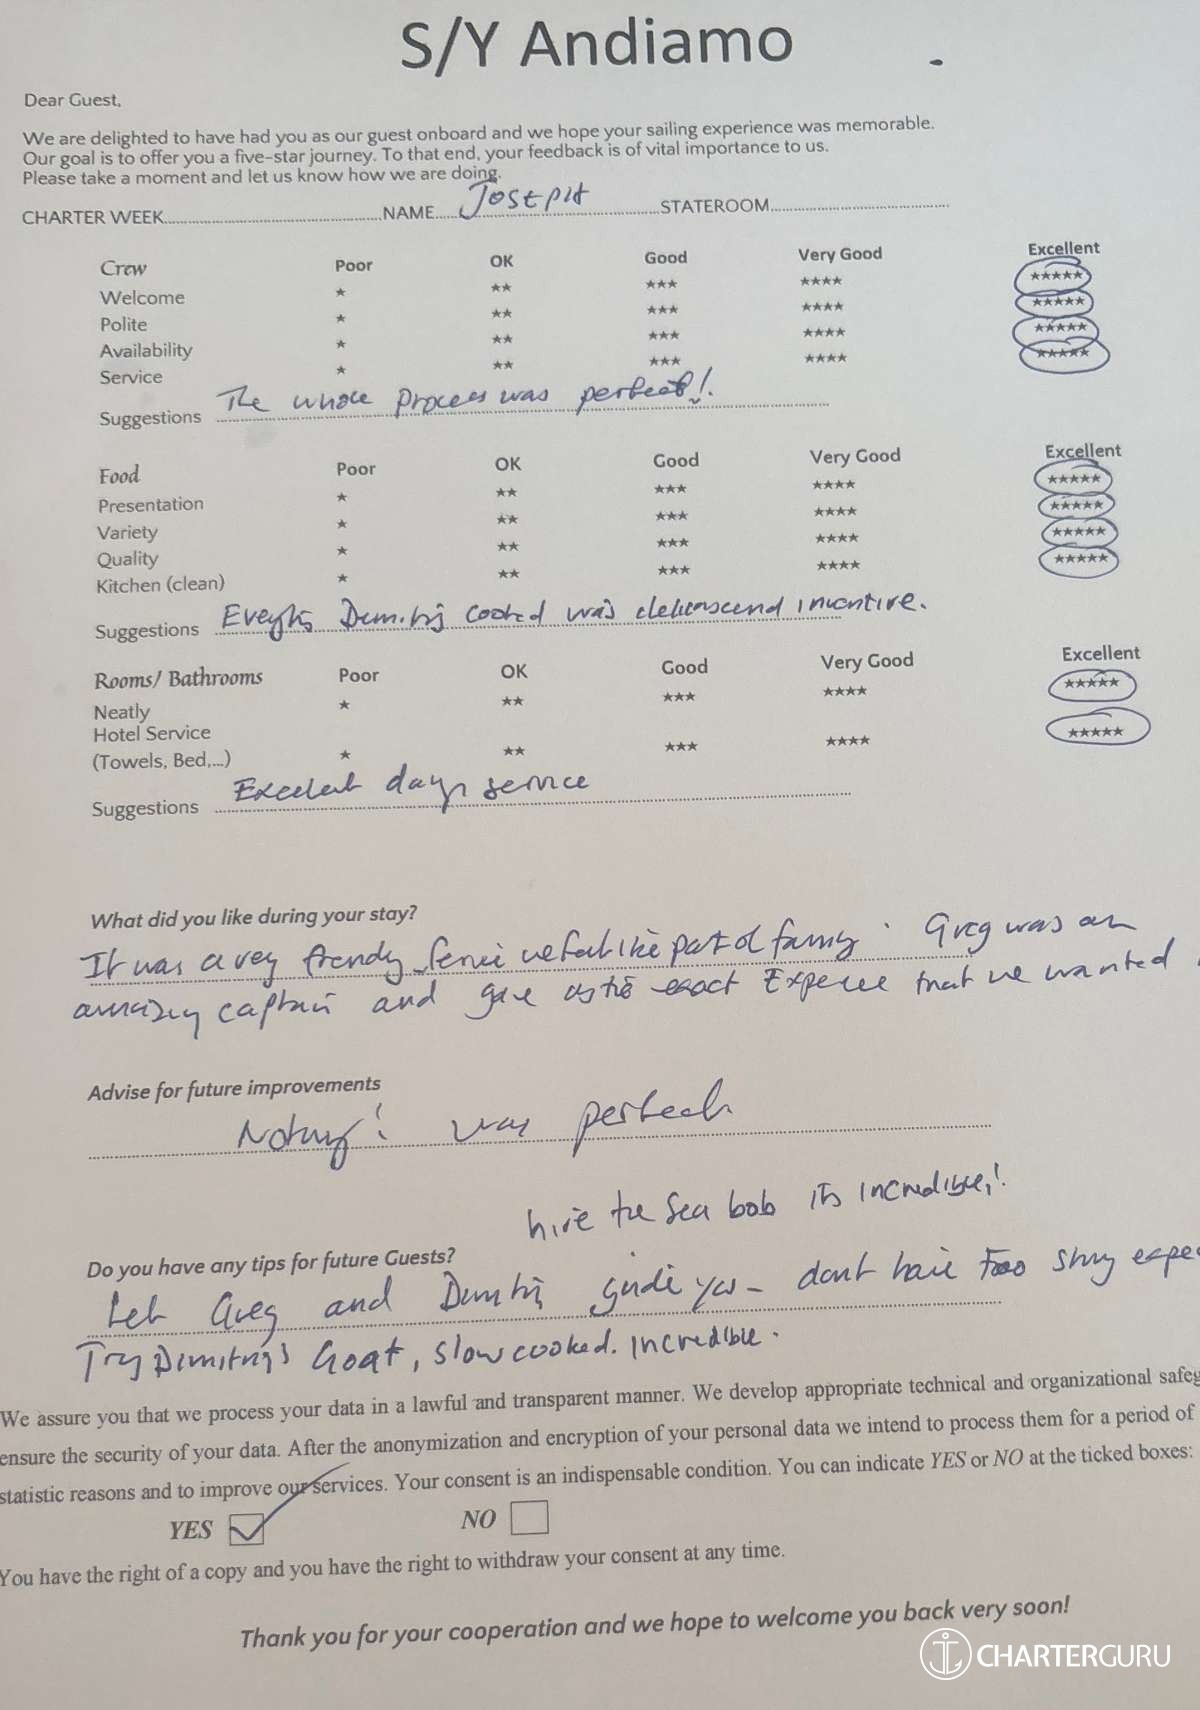 S/Y Andiamo
Dear Guest,
We are delighted to have had you as our guest onboard and we hope your sailing experience was memorable.
Our goal is to offer you a five-star journey. To that end, your feedback is of vital importance to us.
Please take a moment and let us know how we are doing.
CHARTER WEEK NAME JOSEPH STATEROOM
Crew Poor OK Good Very Good Excellent
Welcome ★ ★★ ★★★ ★★★★ ★★★★★
Polite ★ ★★ ★★★ ★★★★ ★★★★★
Availability ★ ★★ ★★★ ★★★★ ★★★★★
Service ★ ★★ ★★★ ★★★★ ★★★★★
Suggestions The whole process was perfect!
Food Poor OK Good Very Good Excellent
Presentation ★ ★★ ★★★ ★★★★ ★★★★★
Variety ★ ★★ ★★★ ★★★★ ★★★★★
Quality ★ ★★ ★★★ ★★★★ ★★★★★
Kitchen (clean) ★ ★★ ★★★ ★★★★ ★★★★★
Suggestions Dimitris cooked was inventive.
Rooms/ Bathrooms Poor OK Good Very Good Excellent
Neatly ★ ★★ ★★★ ★★★★ ★★★★★
Hotel Service
(Towels, Bed,...) ★ ★★ ★★★ ★★★★ ★★★★★
Suggestions Excellent service
What did you like during your stay?
It was a very friendly service we felt like part of family. Greg was an
amazing captain and gave us the exact Experience that we wanted
Advise for future improvements
Nothing! was perfect
hire the Sea bob its incredible!
Do you have any tips for future Guests?
Let Greg and Dimitris guide you - dont have too
Try Dimitris Goat, slow cooked. incredible.
We assure you that we process your data in a lawful and transparent manner. We develop appropriate technical and organizational safeg
ensure the security of your data. After the anonymization and encryption of your personal data we intend to process them for a period of
statistic reasons and to improve our services. Your consent is an indispensable condition. You can indicate YES or NO at the ticked boxes:
YES NO
You have the right of a copy and you have the right to withdraw your consent at any time.
Thank you for your cooperation and we hope to welcome you back very soon!
CHARTERGURU